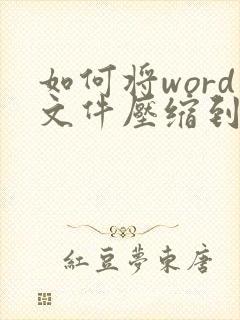 如何将word
文件壓缩到
紅豆夢東唐